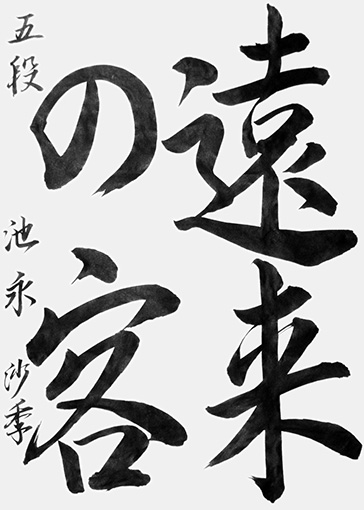 遠来
の客
五段 池永沙季